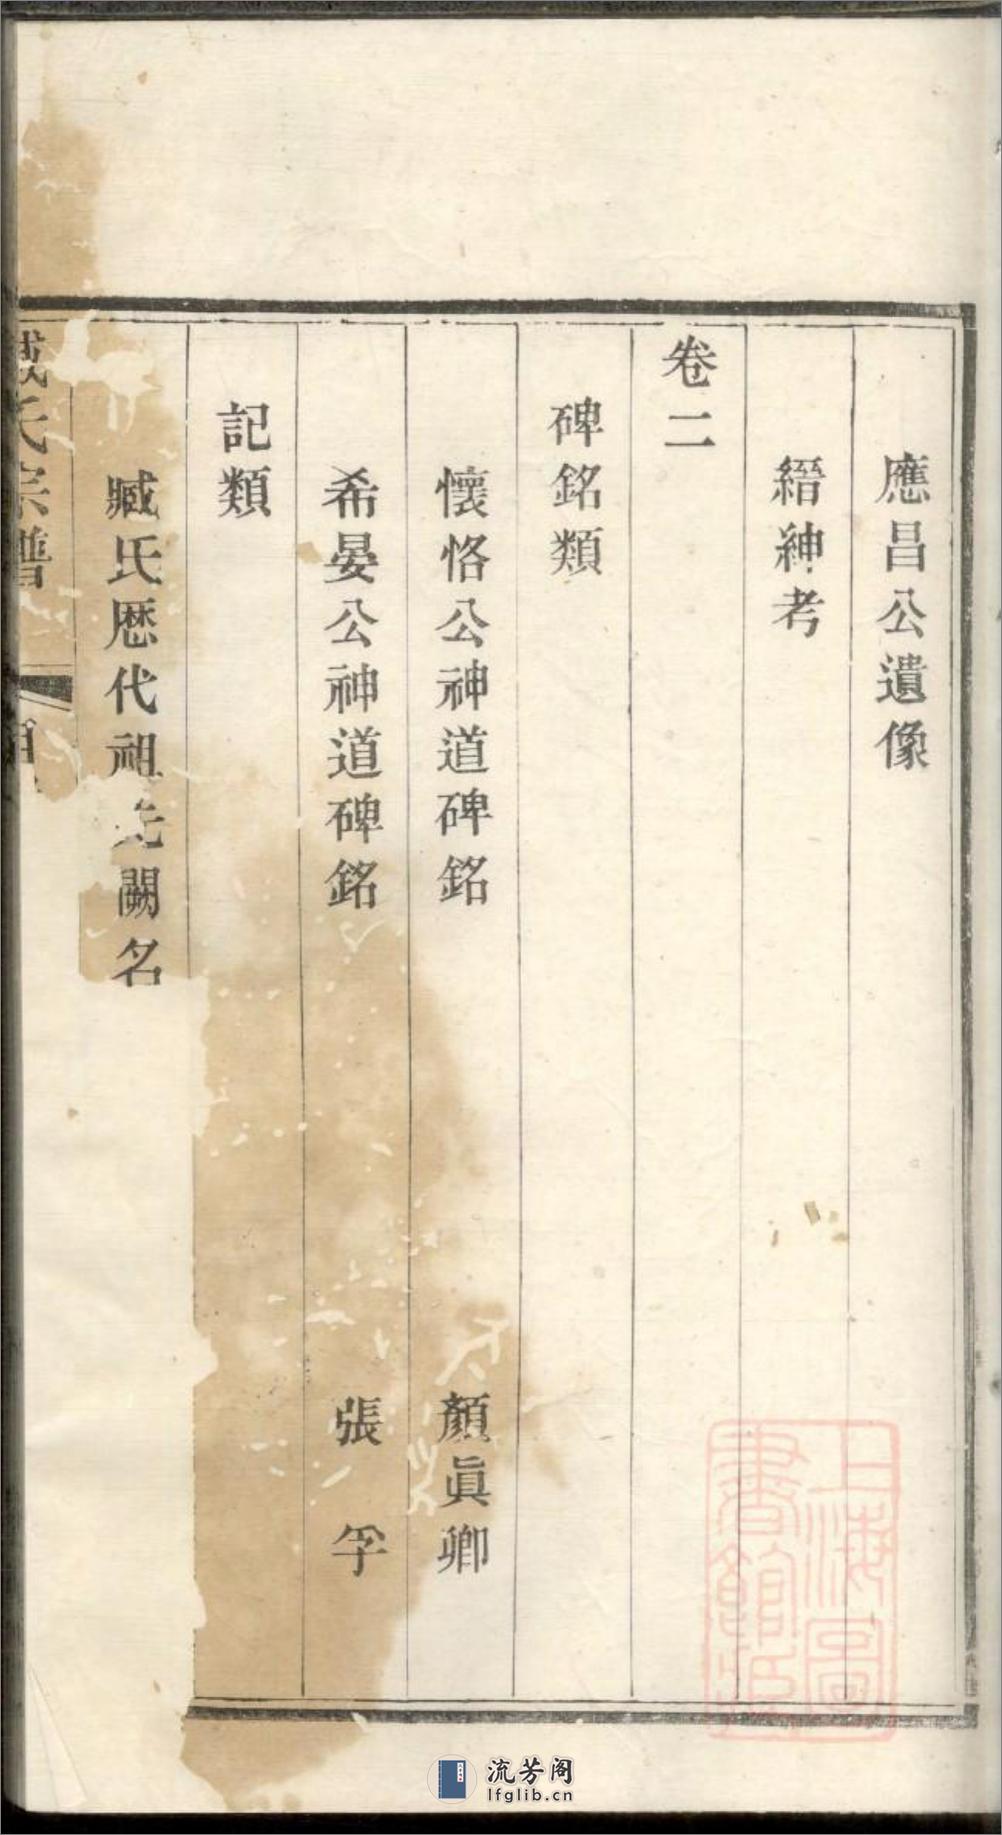 應昌公遺像
縉紳考
卷二
碑銘類
懷恪公神道碑銘 顏眞卿
希晏公神道碑銘 張
記類
臧氏歷代祖先闕名
氏宗譜
上海圖書館藏
流芳阁
lfglib.cn